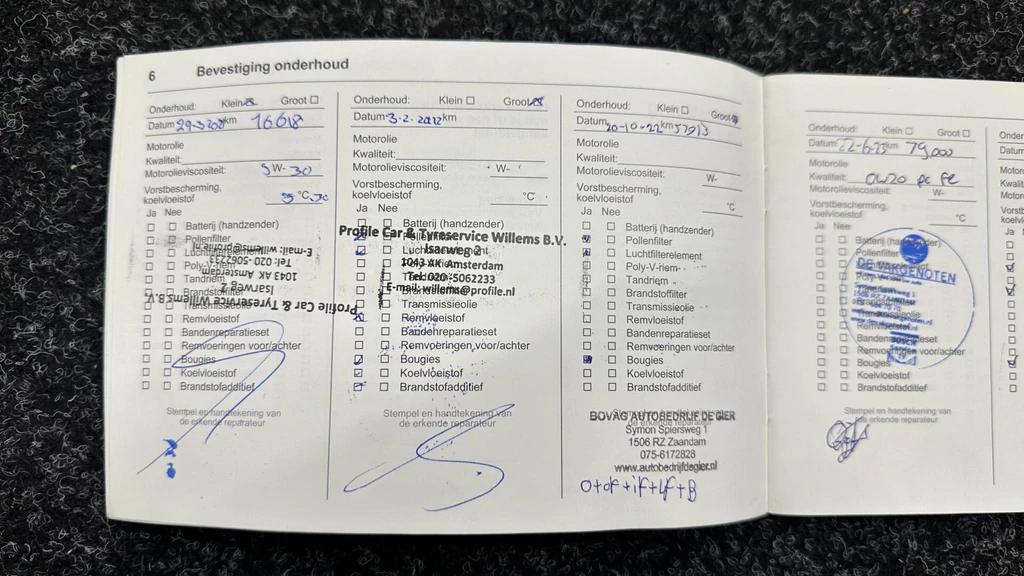 6 Bevestiging onderhoud
Onderhoud: Klein Groot
Datum km 16618
Motorolie
Kwaliteit:
Motorolieviscositeit: 5W-30
Vorstbescherming,
koelvloeistof °C
Ja Nee
Batterij (handzender)
Pollenfilter
Luchtfilterelement
Poly-V-riem
Tandriem
Brandstoffilter
Transmissieolie
Remvloeistof
Bandenreparatieset
Remvoeringen voor/achter
Bougies
Koelvloeistof
Brandstofadditief
Profile Car & Tyreservice Willems B.V.
Isarweg 2
1043 AK Amsterdam
Tel: 020-5062233
E-mail: willems@profile.nl
Stempel en handtekening van
de erkende reparateur
Onderhoud: Klein Groot
Datum 3-2- km
Motorolie
Kwaliteit:
Motorolieviscositeit: W-
Vorstbescherming,
koelvloeistof °C
Ja Nee
Batterij (handzender)
Pollenfilter
Luchtfilterelement
Tandriem
Transmissieolie
Remvloeistof
Bandenreparatieset
Remvoeringen voor/achter
Bougies
Koelvloeistof
Brandstofadditief
Profile Car & Tyreservice Willems B.V.
Isarweg 2
1043 AK Amsterdam
Tel: 020-5062233
E-mail: willems@profile.nl
Stempel en handtekening van
de erkende reparateur
Onderhoud: Klein Groot
Datum 20-10-22 km 57913
Motorolie
Kwaliteit:
Motorolieviscositeit: W-
Vorstbescherming,
koelvloeistof °C
Ja Nee
Batterij (handzender)
Pollenfilter
Luchtfilterelement
Poly-V-riem
Tandriem
Brandstoffilter
Transmissieolie
Remvloeistof
Bandenreparatieset
Remvoeringen voor/achter
Bougies
Koelvloeistof
Brandstofadditief
Stempel en handtekening van
de erkende reparateur
BOVAG AUTOBEDRIJF DE GIER
Symon Spiersweg 1
1506 RZ Zaandam
075-6172828
www.autobedrijfdegier.nl
O+of+if+Lf+B
Onderhoud: Klein Groot
Datum 22-6-23 km 79,000
Motorolie
Kwaliteit: 0W20
Motorolieviscositeit: W-
Vorstbescherming,
koelvloeistof °C
Ja Nee
Batterij (handzender)
Pollenfilter
Remvloeistof
Bandenreparatieset
Remvoeringen voor/achter
Bougies
Koelvloeistof
Brandstofadditief
DE VARGENOTEN
1506 RZ Zaandam
Stempel en handtekening van
de erkende reparateur